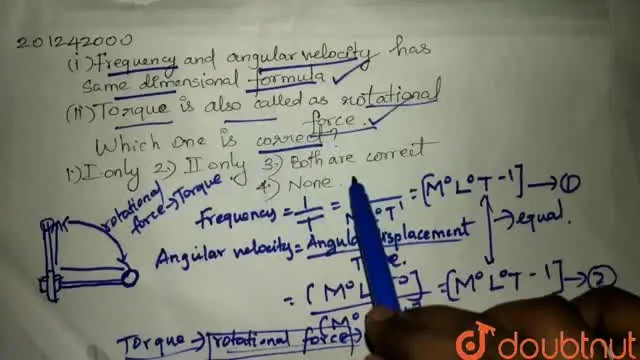 201242000
(i) Frequency and angular velocity has
same dimensional formula
(ii) Torque is also called as rotational
force.
Which one is correct?
1.) I only 2.) II only 3.) Both are correct
4.) None.
rotational
force → Torque
Frequency = 1/T = = [M⁰L⁰T-1] → ①
Angular velocity = Angular displacement
Time
→ equal.
= = [M⁰L⁰T-1] → ②
Torque → rotational force →
doubtnut